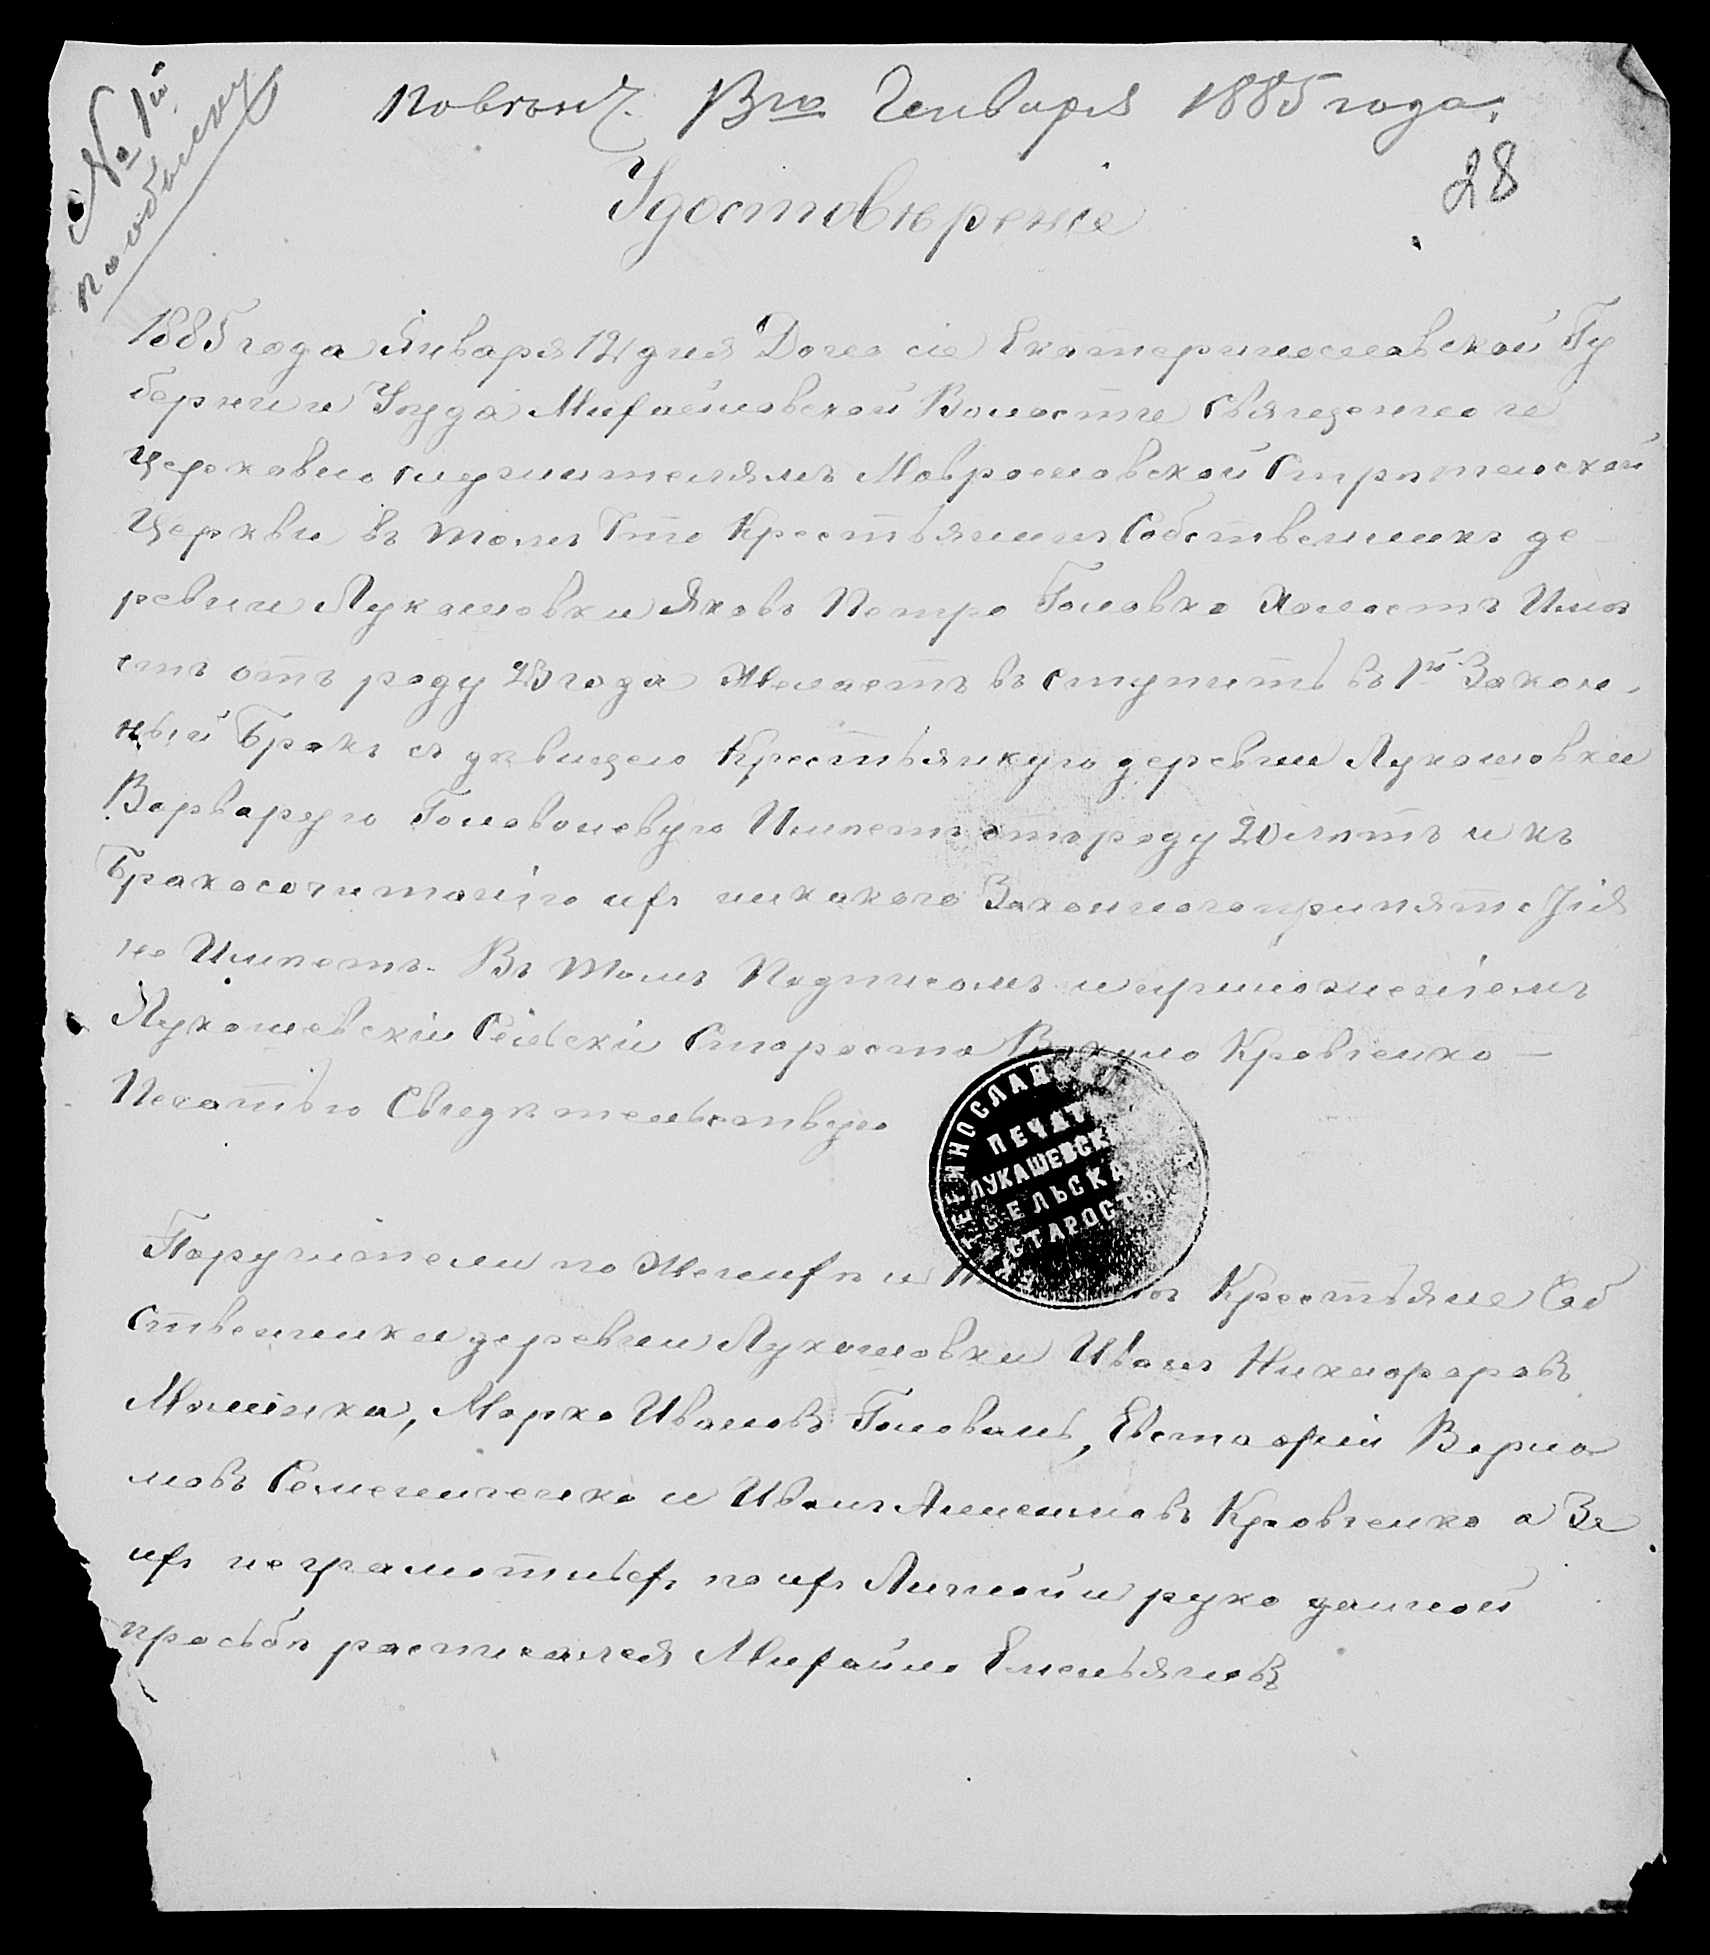 № 1й
по обыску
Повѣнч. 13го Генваря 1885 года.
28
Удостовѣреніе
1885 года Января 12 дня Дано сіе Екатеринославской Гу
берніи и Уезда Михайловской Волости Священно и
Церковно служителямъ Мавроновской Стрѣтенской
Церкви въ томъ Что Крестьянинъ Собственникъ де
ревни Лукашовки Яковъ Петро Головко Холостъ Имѣ
етъ отъ роду 23 года Желаетъ въ ступить въ 1й Закон
ный Бракъ съ дѣвицею Крестьянкую деревни Лукашовки
Варварую Головоневую Имѣетъ отъ роду 20 лѣтъ и къ
Бракосочитанію ихъ никакого Законного припятствія
не Имѣетъ. Въ томъ Подписомъ и приложеніемъ
Лукашевскій Сельскій Староста Вакуло Кравченко
Печатью Свѣдѣтельствую
ЕКАТЕРИНОСЛАВСК
ПЕЧАТ
ЛУКАШЕВСК
СЕЛЬСКА
СТАРОСТЫ
Поручители по Женихѣ и Крестьяне Соб
ственники деревни Лукашовки Иванъ Никифоровъ
Марко Ивановъ Головань, Евстафій Варла
мовъ Семениченко и Иванъ Кравченко а За
ихъ неграмотныхъ по ихъ Личной и руко данной
просьбѣ расписался Михайло Емельяновъ